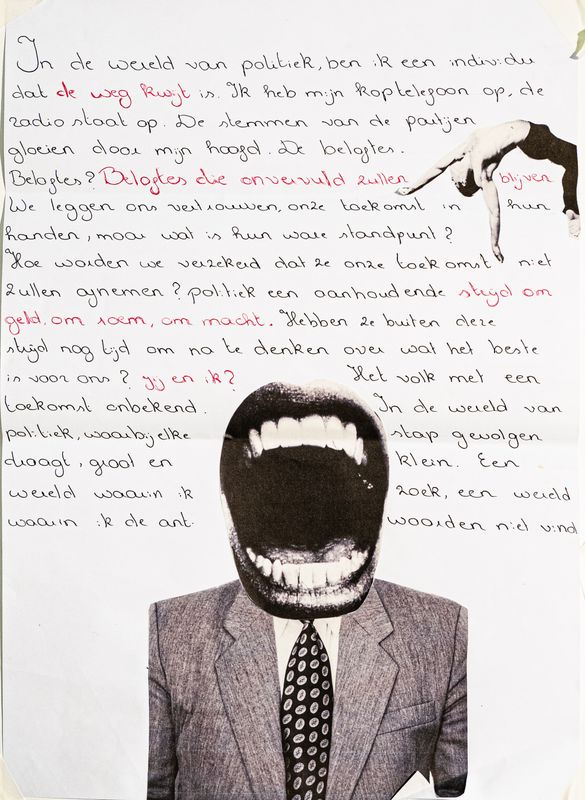 In de wereld van politiek, ben ik een individu
dat de weg kwijt is. Ik heb mijn koptelegoon op, de
radio staat op. De stemmen van de partijen
gloeien door mijn hoogd. De beloftes.
Beloftes? Beloftes die onvervuld zullen blijven
We leggen ons vertrouwen, onze toekomst in hun
handen, maar wat is hun ware standpunt?
Hoe worden we verzekerd dat ze onze toekomst niet
zullen afnemen? politiek een aanhoudende strijd om
geld, om roem, om macht. Hebben ze buiten deze
strijd nog tijd om na te denken over wat het beste
is voor ons? jij en ik? Het volk met een
toekomst onbekend. In de wereld van
politiek, waarbij elke stap gevolgen
draagt, groot en klein. Een
wereld waarin ik zoek, een wereld
waarin ik de ant. woorden niet vind